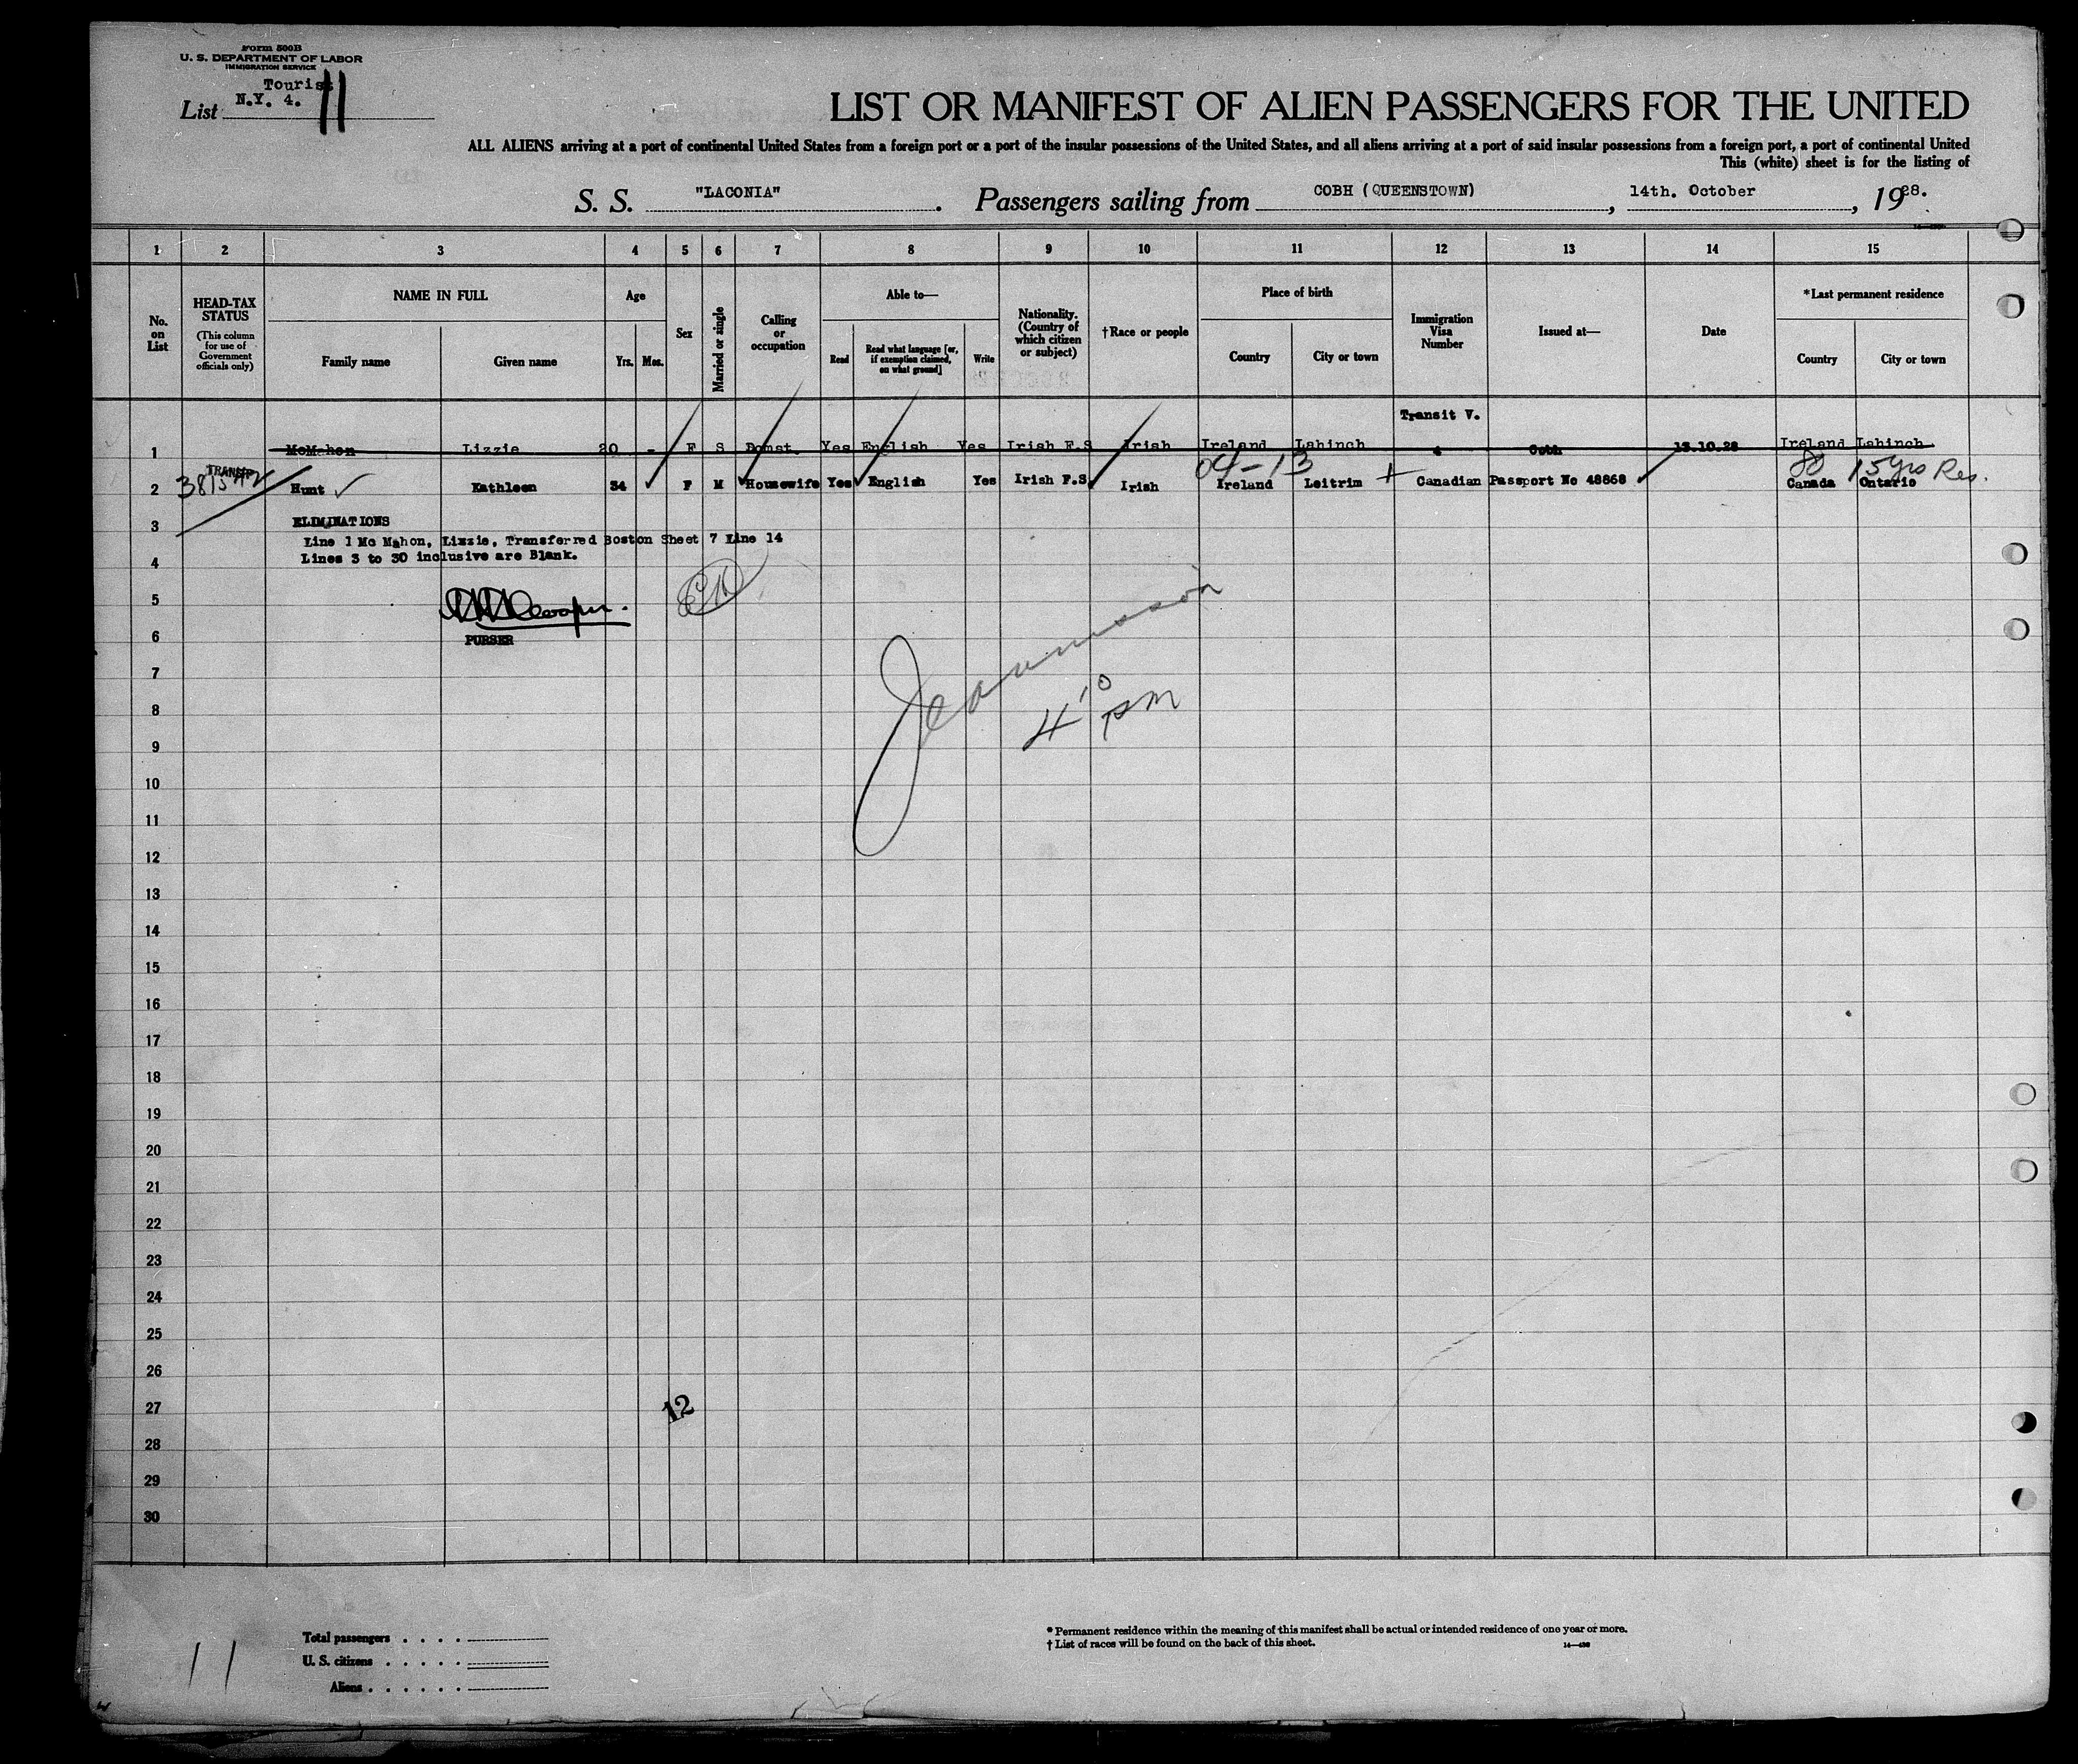 Form 500B
U. S. DEPARTMENT OF LABOR
IMMIGRATION SERVICE
Tourist
List N.Y. 4. 11
LIST OR MANIFEST OF ALIEN PASSENGERS FOR THE UNITED
ALL ALIENS arriving at a port of continental United States from a foreign port or a port of the insular possessions of the United States, and all aliens arriving at a port of said insular possessions from a foreign port, a port of continental United
This (white) sheet is for the listing of
S. S. "LACONIA". Passengers sailing from COBH (QUEENSTOWN), 14th. October, 1928.
1 2 3 4 5 6 7 8 9 10 11 12 13 14 15
No. on List
HEAD-TAX STATUS
(This column for use of Government officials only)
NAME IN FULL
Family name Given name
Age
Yrs. Mos.
Sex
Married or single
Calling or occupation
Able to—
Read Read what language [or, if exemption claimed, on what ground] Write
Nationality. (Country of which citizen or subject)
†Race or people
Place of birth
Country City or town
Immigration Visa Number
Issued at—
Date
*Last permanent residence
Country City or town
Transit V.
1 McMahon Lizzie 20 - F S Domst. Yes English Yes Irish F.S Irish Ireland Lahinch Cobh 13.10.28 Ireland Lahinch
TRANSIT 04-13 15 yrs Res.
2 Hunt Kathleen 34 F M Housewife Yes English Yes Irish F.S. Irish Ireland Leitrim Canadian Passport No 48868 Canada Ontario
3 ELIMINATIONS
Line 1 Mc Mahon, Lizzie, Transferred Boston Sheet 7 Line 14
4 Lines 3 to 30 inclusive are Blank.
5
6 PURSER
7
8 4 10 PM
9
10
11
12
13
14
15
16
17
18
19
20
21
22
23
24
25
26
27 12
28
29
30
Total passengers
U. S. citizens
Aliens
11
* Permanent residence within the meaning of this manifest shall be actual or intended residence of one year or more.
† List of races will be found on the back of this sheet.
14—430